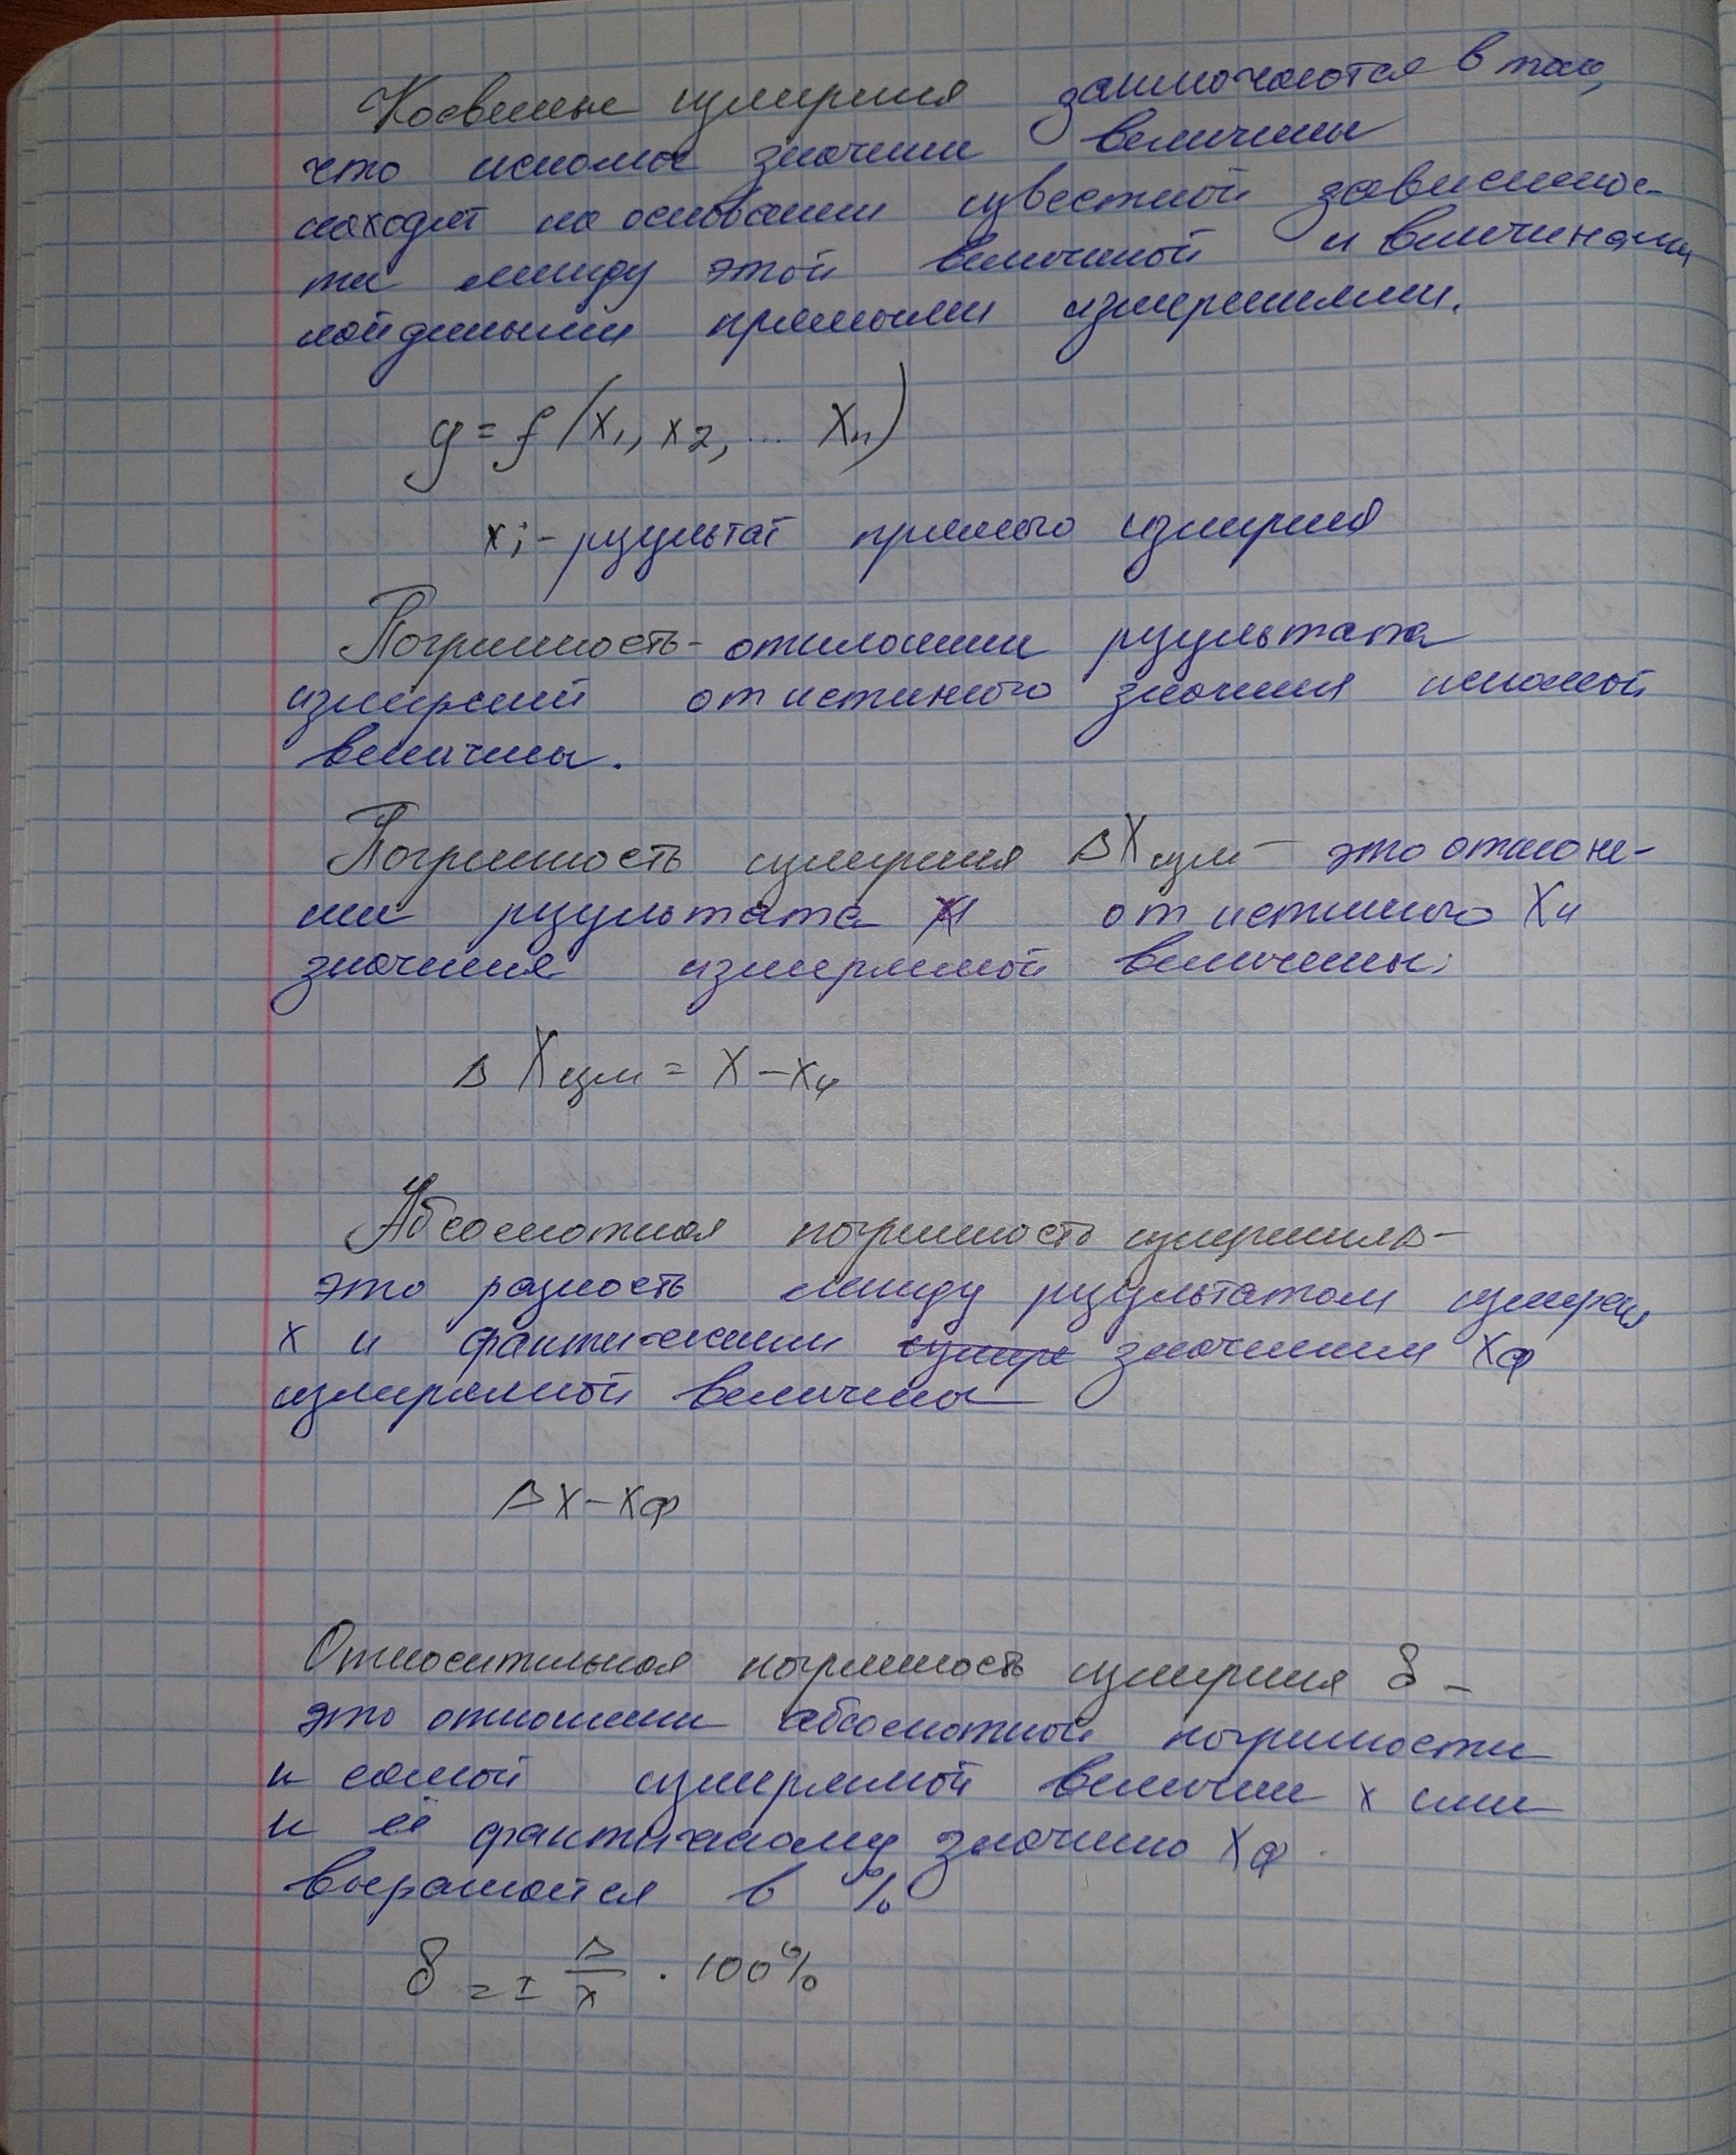 Косвенные измерения заключаются в том,
что искомое значение величины
находят на основании известной зависимос-
ти между этой величиной и величинами
найденными прямыми измерениями.
y = f (x1, x2, ... xn)
xi - результат прямого измерения
Погрешность - отклонение результата
измерений от истинного значения искомой
величины.
Погрешность измерения ΔXизм - это отклоне-
ние результата X от истинного Xи
значения измеряемой величины:
Δ Xизм = X - xи
Абсолютная погрешность измерения Δ -
это разность между результатом измерен.
x и фактическим измере значением Xф
измеряемой величины
Δ x - xф
Относительная погрешность измерения δ -
это отношение абсолютной погрешности
к самой измеряемой величине x или
к её фактическому значению Xф
выражается в %
δ = ± Δ/x · 100%